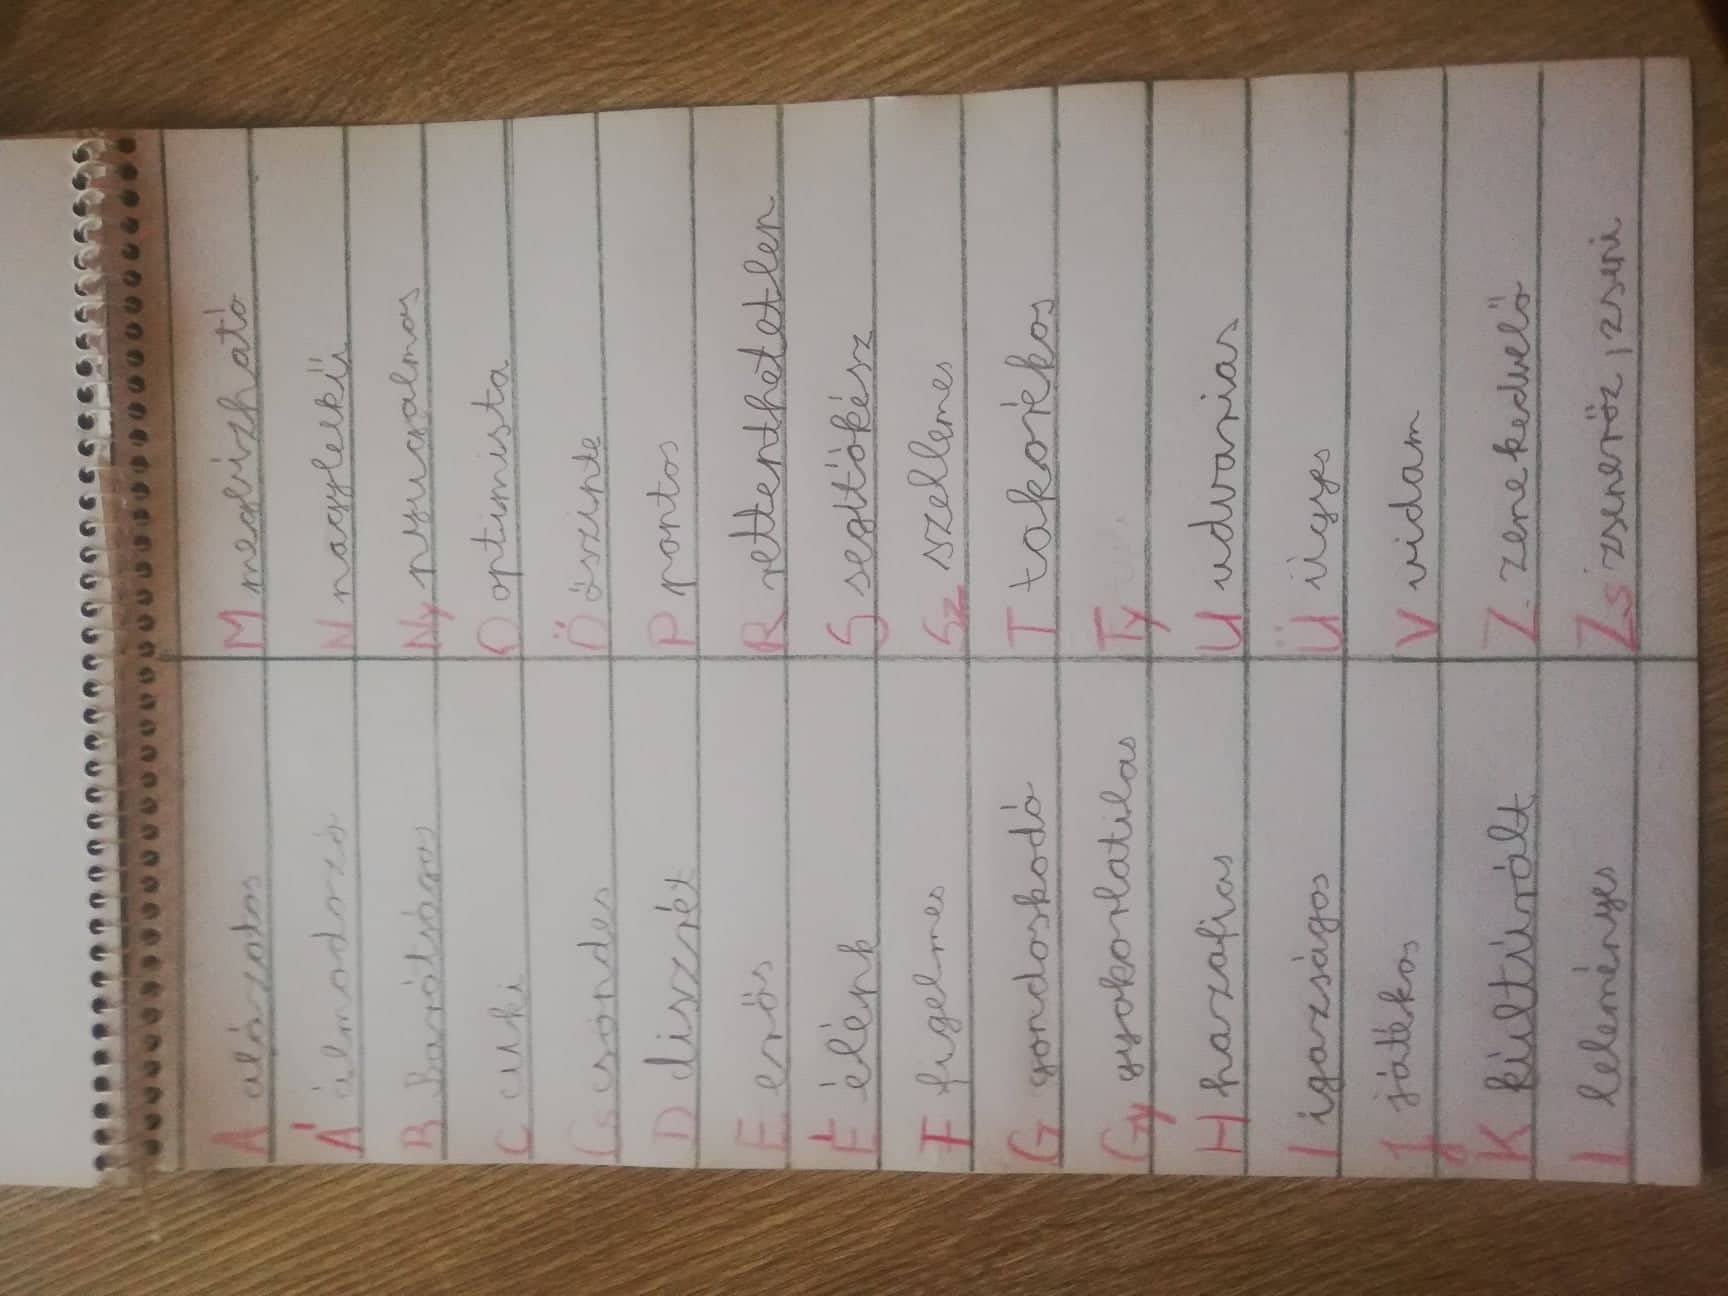 A alázatos
Á álmodozó
B barátságos
C cuki
Cs csöndes
D diszrét
E erős
É élénk
F figelmes
G gondoskodó
Gy gyokorlatilas
H hazafias
I igazságos
J játékos
K kúltúrált
L leleményes
M megbízható
N nagylelkű
Ny nyugalmas
O optimista
Ö őszinte
P pontos
R rettenthetetlen
S segítőkész
Sz szellemes
T takarékos
Ty
U udvarias
Ü ügyes
V vidam
Z zenekedvelő
Zs zsenerőz, zseni